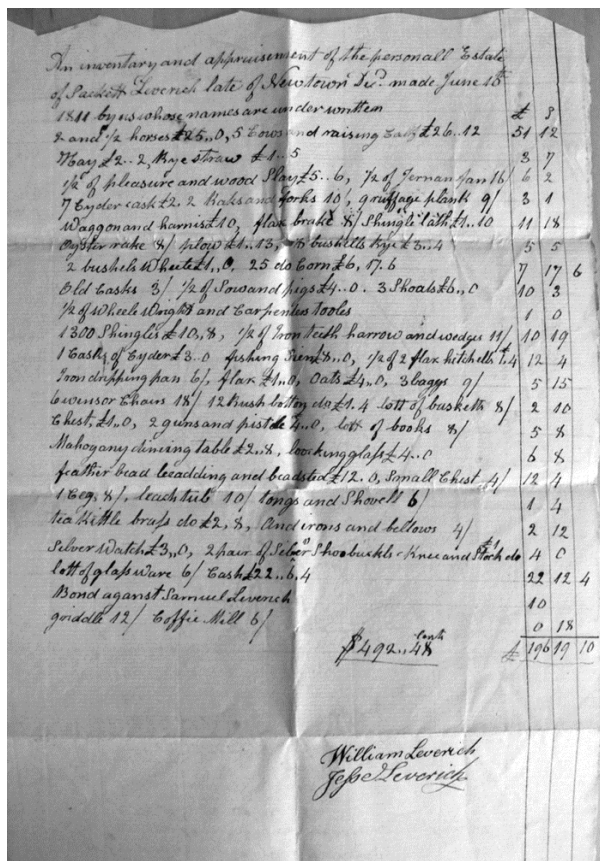 An inventary and appraisement of the personall Estate
of Sackett Leverich late of Newtown Decd. made June 15th
1811 by us whose names are under written
2 and 1/2 horses £25,,0, 5 Cows and raising Calf £26..12 51 12
Hay £2..2, Rye straw £1..5 3 7
1/2 of pleasure and wood Slay £5..6, 1/2 of fan 16/ 6 2
7 Cyder cask £2.2 Raks and forks 10/, plank 9/ 3 1
Waggon and harnis £10, flax brake 8/ Shingle lath £1..10 11 18
Oyster rake 8/ plow £1..13, 8 bushells Rye £3..4 5 5
2 bushels Wheete £1,,0, 25 do Corn £6,17.6 7 17 6
Old Casks 3/ 1/2 of Sow and pigs £4..0. 3 Shoats £6,,0 10 3
1/2 of wheele Wright and Carpenters tooles 1 0
1300 Shingles £10,,8, 1/2 of Iron teeth harrow and wedges 11/ 10 19
1 Cask of Cyder £3..0 fishing £8..0, 1/2 of 2 flax hitchells 12 4
Iron dripping pan 6/, flax £1..0, Oats £4,,0, 3 baggs 9/ 5 15
winsor Chairs 18/ 12 Rush bottom do £1.4 lott of basketts 8/ 2 10
Chest, £1..0, 2 guns and pistole £4..0, lott of books 8/ 5 8
Mahogany dining table £2..8, looking glass £4..0 6 8
feather bead beadding and beadsted £12.0, Small Chest 4/ 12 4
1 Ceg, 8/, leach tub 10/ tongs and Shovell 6/ 1 4
tea Kittle brass do £2,8, And irons and bellows 4/ 2 12
Selver Watch £3,,0, 2 pair of Selver Shoobuckls Knee and Stock do £1 4 0
lott of glass ware 6/ Cash £22..6.4 22 12 4
Bond against Samuel Leverich 10
griddle 12/ Coffie Mill 6/ 0 18
$492..48 Cents £ 196 19 10
William Leverich
Jesse Leverich